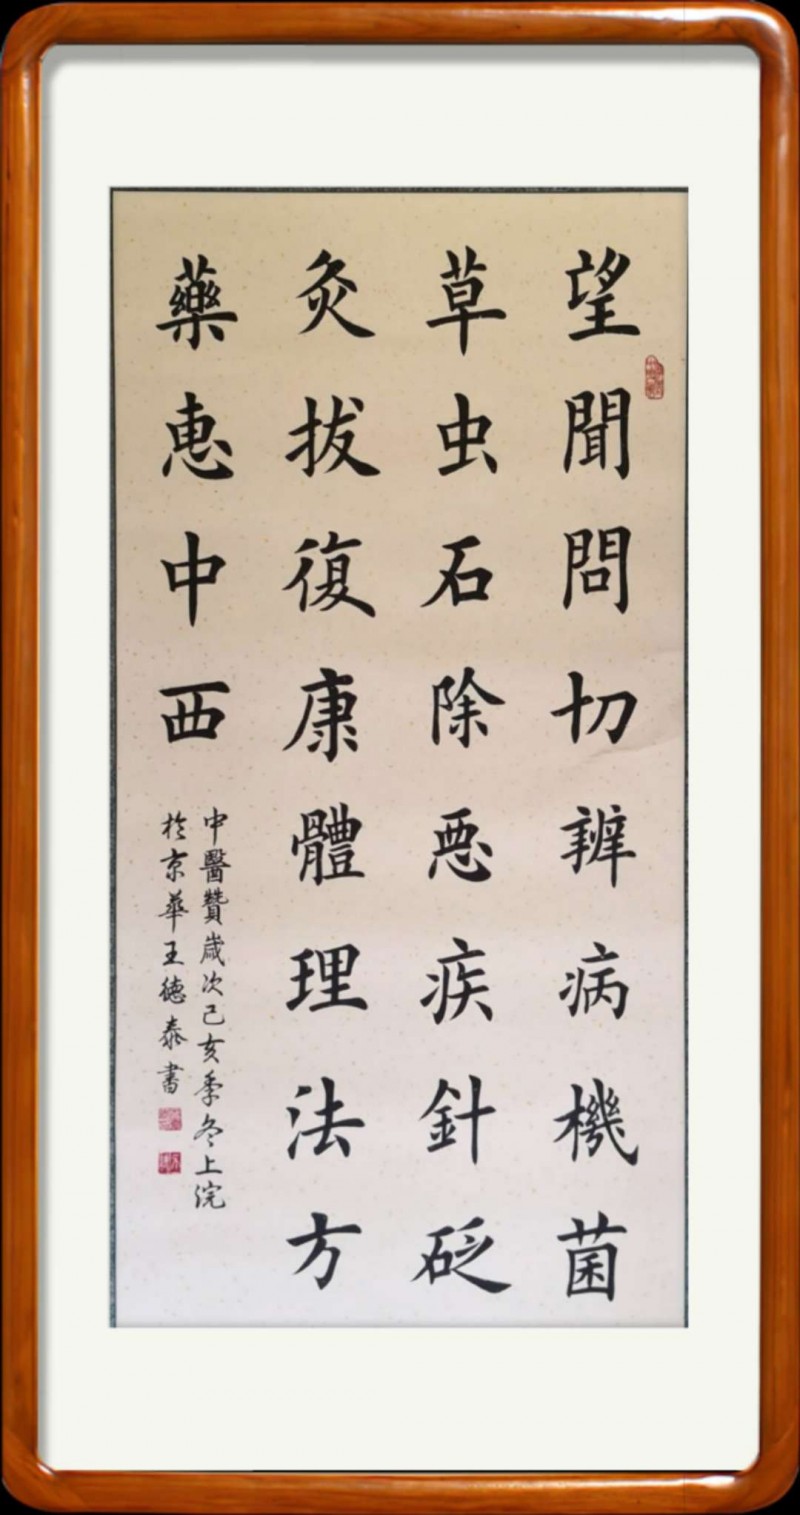 望聞問切辨病機菌
草虫石除惡疾針砭
灸拔復康體理法方
藥惠中西
中醫贊歲次己亥季冬上浣
於京華王德泰書